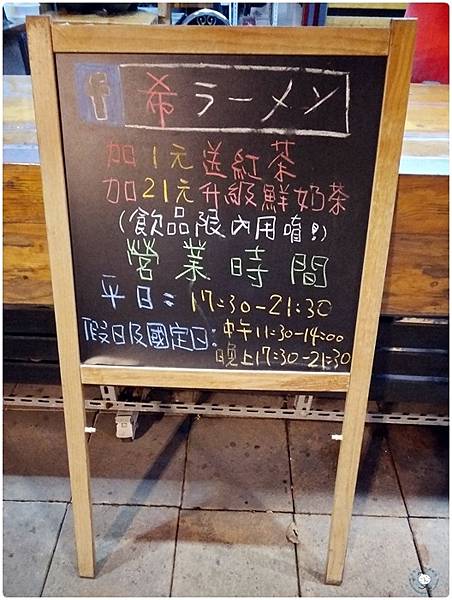 f 希ラーメン
加1元送紅茶
加21元升級鮮奶茶
(飲品限內用唷!)
營業時間
平日：17:30-21:30
假日及國定日：中午11:30-14:00
晚上17:30-21:30